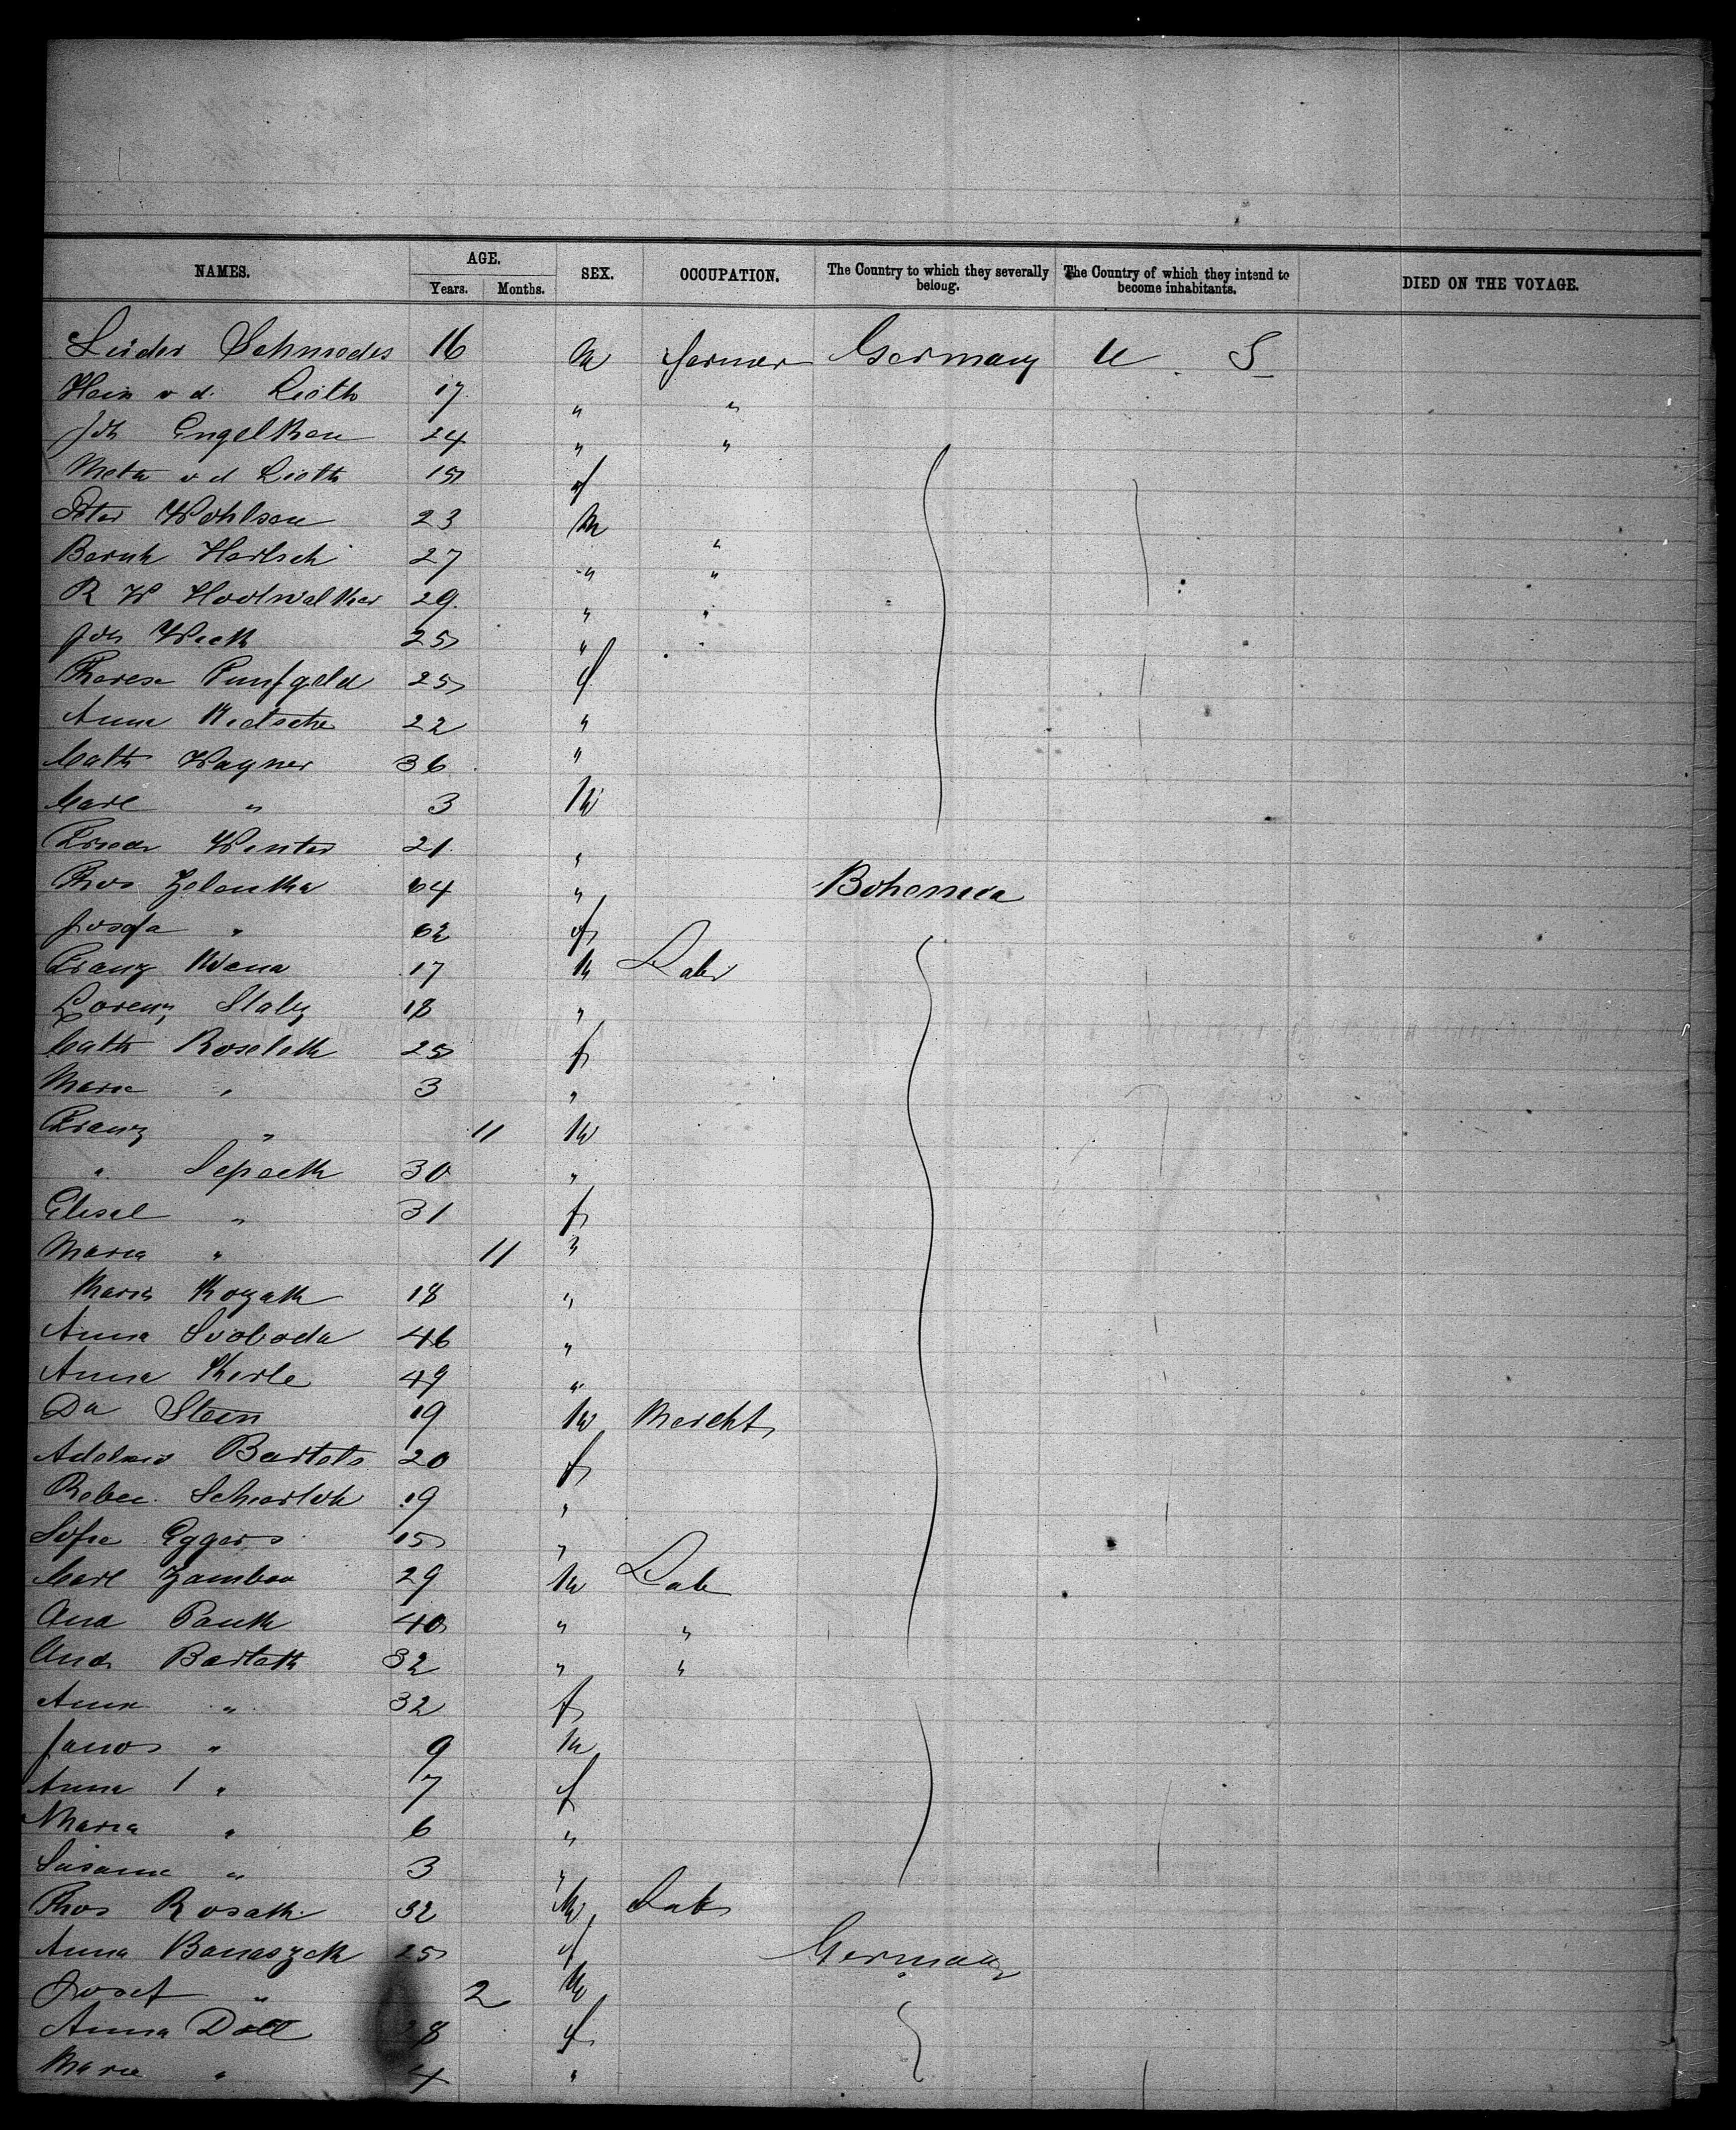 NAMES. AGE. SEX. OCCUPATION. The Country to which they severally belong. The Country of which they intend to become inhabitants. DIED ON THE VOYAGE.
Years. Months.
Lüder Schmedes 16 m farmer Germany U. S
Hein v d. Lieth 17 " "
Joh Engelken 24 " "
Meta v d Lieth 15 f
Peter Wohlsen 23 m "
Bernh 27 " "
R W Hootwalker 29 " "
Joh Wieck 25 " "
Therese 25 f
Anna 22 "
Cath Wagner 36 "
Carl " 3 m
Friedr Winter 21 "
Thos Zelenka 64 " Bohemia
Josefa " 62 f
Franz 17 m Labr
Lorenz 18 "
Cath 25 f
Marie " 3 "
Franz " 11 m
" 30 "
Elisab " 31 f
Maria " 11 "
Maria Kozak 18 "
Anna Svoboda 46 "
Anna Kerle 49 "
Da Stein 19 m Mercht
Bartels 20 f
Rebec. 19 "
Sofie Eggers 15 "
Carl 29 m Lab
And 40 " "
And 32 " "
Anna " 32 f
Janos " 9 m
Anna " 7 f
Maria " 6 "
Susanne " 3 "
Thos Rosak 32 m Lab
Anna Banaszek 25 f Germany
Josef " 2 m
Anna Doll 28 f
Marie " 4 "